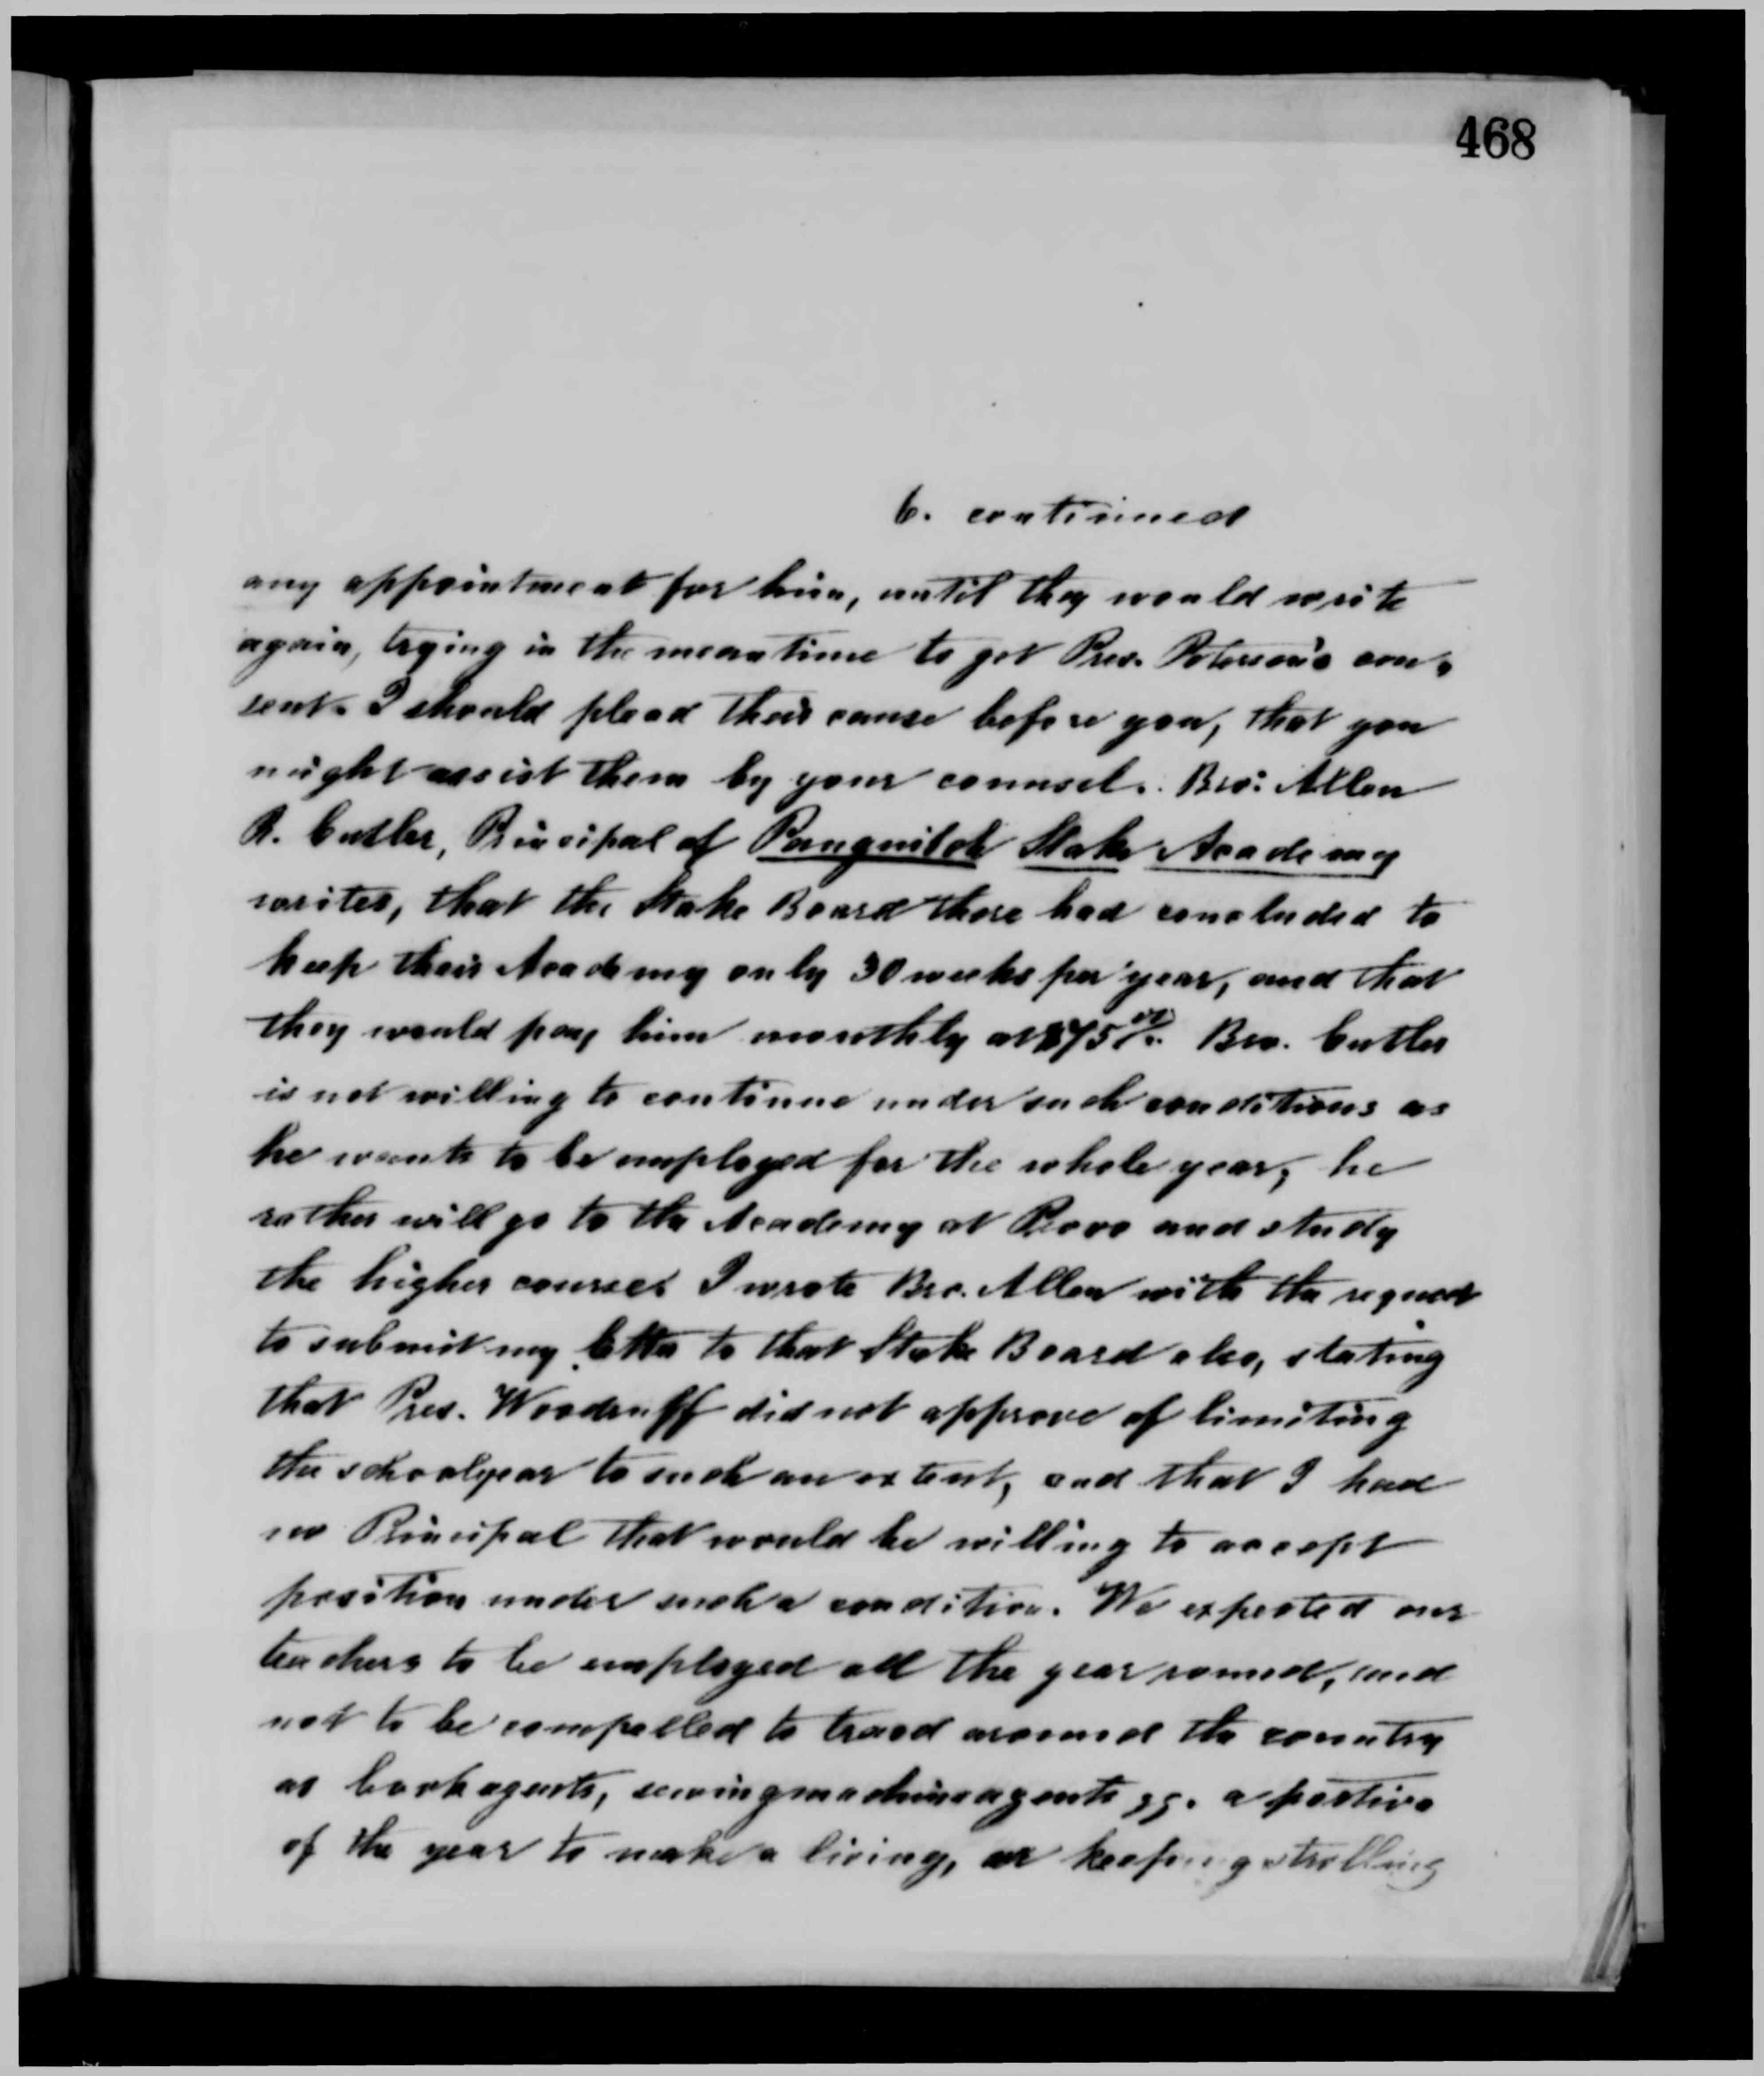 468
6. continued
any appointment for him, until they would write
again, trying in the meantime to get Pres. Peterson's con-
sent. I should plead their cause before you, that you
might assist them by your counsel. Bro: Allen
R. Cutler, Principal of Panguitch Stake Academy
writes, that the Stake Board there had concluded to
keep their Academy only 30 weeks per year, and that
they would pay him monthly at $75 00/. Bro. Cutler
is not willing to continue under such conditions as
he wants to be employed for the whole year, he
rather will go to the Academy at Provo and study
the higher courses I wrote Bro. Allen with the request
to submit my letter to that Stake Board also, stating
that Pres. Woodruff did not approve of limiting
the schoolyear to such an extent, and that I had
no Principal that would be willing to accept
position under such a condition. We expected our
teachers to be employed all the year round, and
not to be compelled to travel around the country
as bookagents, sewingmachineagents gg. a portion
of the year to make a living, or keeping strolling